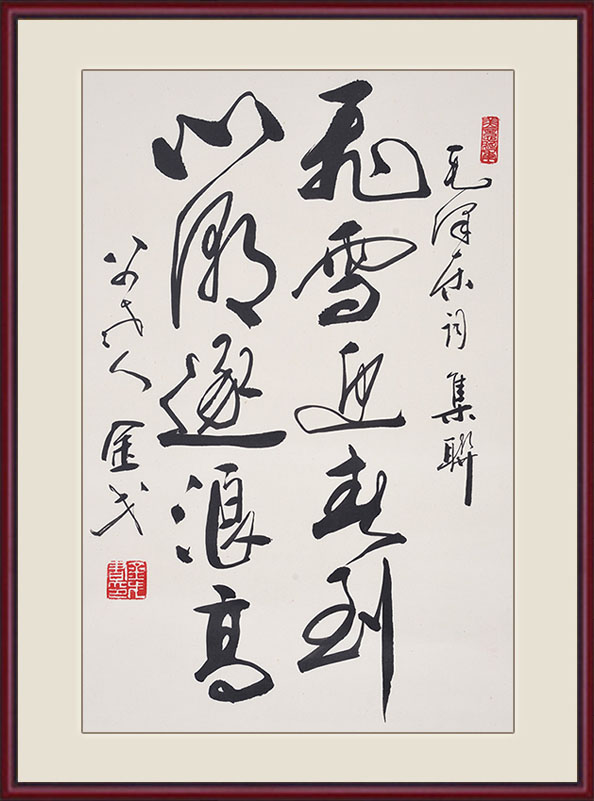 毛澤東詞集聯
飛雪迎春到
心潮逐浪高
金戈